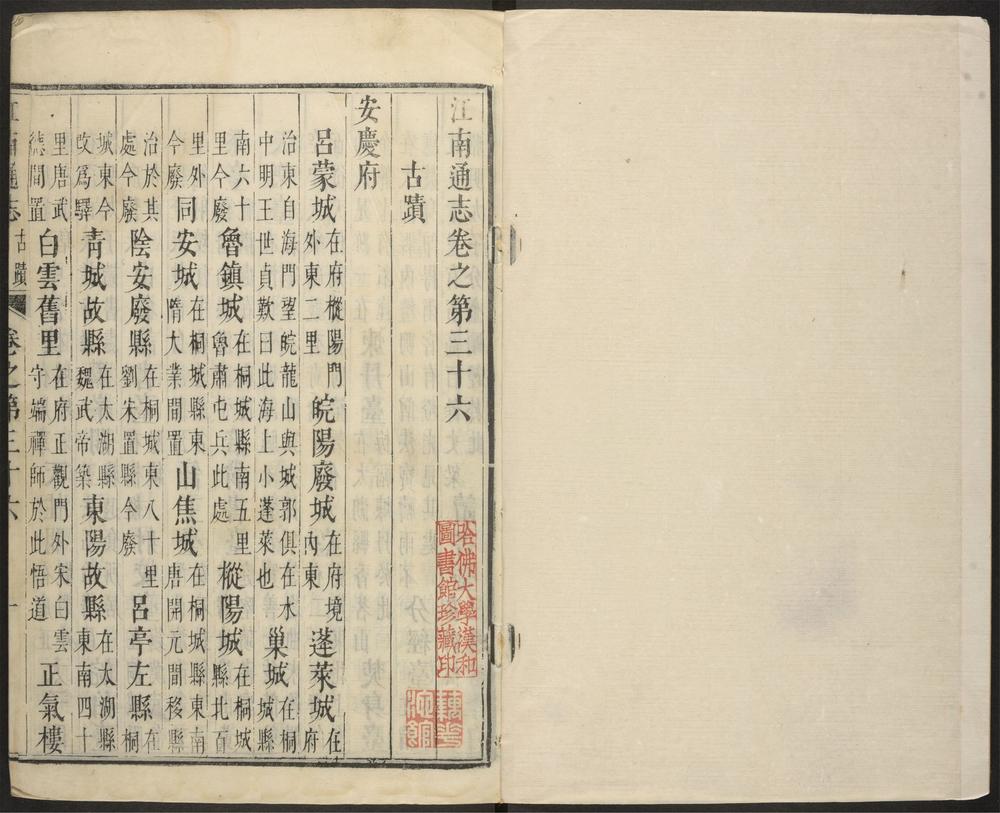 江南通志卷之第三十六
古蹟
安慶府
呂蒙城在府樅陽門外東二里皖陽廢城在府境內東蓬萊城在府
治東自海門望皖龍山與城郭俱在水中明王世貞歎曰此海上小蓬萊也巢城在桐城縣
南六十里今廢魯鎮城在桐城縣南五里魯肅屯兵此處樅陽城在桐城縣北百
里外今廢同安城在桐城縣東隋大業間置山焦城在桐城縣東南唐開元間移縣
治於其處今廢陰安廢縣在桐城東八十里劉宋置縣今廢呂亭左縣在桐
城東今改爲驛青城故縣在太湖縣魏武帝築東陽故縣在太湖縣東南四十
里唐武德間置白雲舊里在府正觀門外宋白雲守端禪師於此悟道正氣樓
江南通志 古蹟 卷之第三十六 一
哈佛大學漢和
圖書館珍藏印